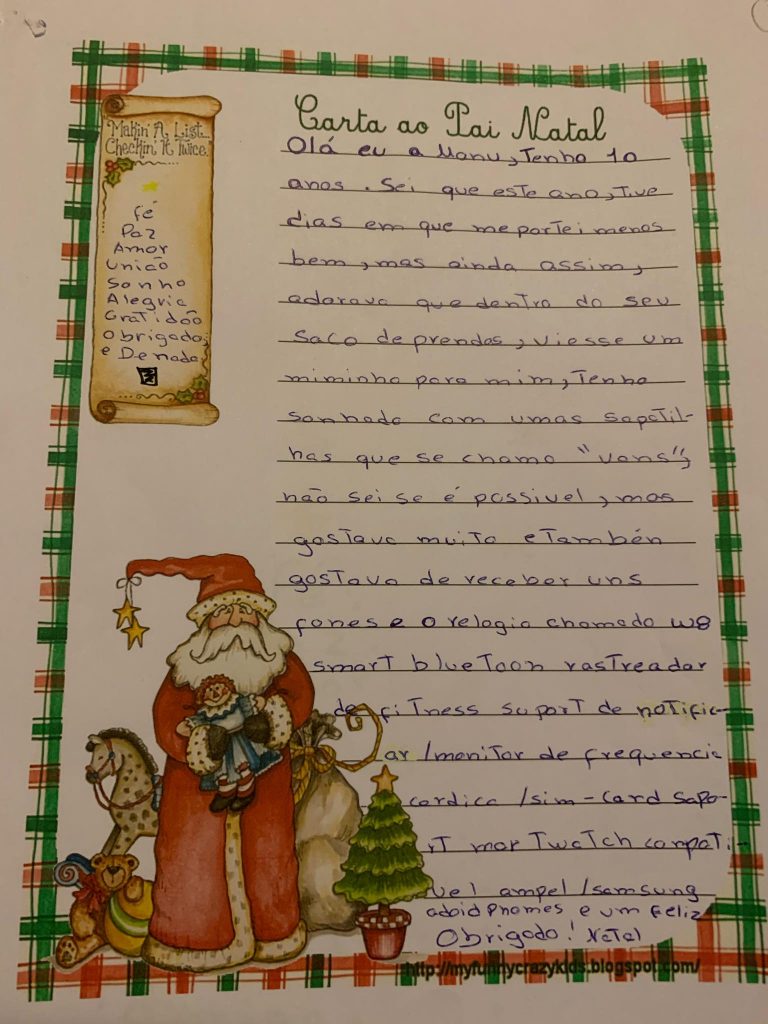 Makin' A List...
Checkin' It Twice.
fé
Paz
Amor
União
Sonho
Alegria
Gratidão
Obrigado,
e De nada
Carta ao Pai Natal
Olá eu a Manu, Tenho 10
anos. Sei que este ano, tive
dias em que me portei menos
bem, mas ainda assim,
adorava que dentro do seu
saco de prendas, viesse um
miminho para mim, Tenho
sonhado com umas sapatil-
has que se chama "vans",
não sei se é possivel, mas
gostava muito e também
gostava de receber uns
fones e o relogio chamado W8
smart bluetoon rastreador
de fitness suport de notific-
ar/monitor de frequencia
cardica /sim-card sapo-
rt mar Twatch conpati-
vel ampel/samsung
adoid Phomes e um feliz
Obrigado! Natal
http://myfunnycrazykids.blogspot.com/